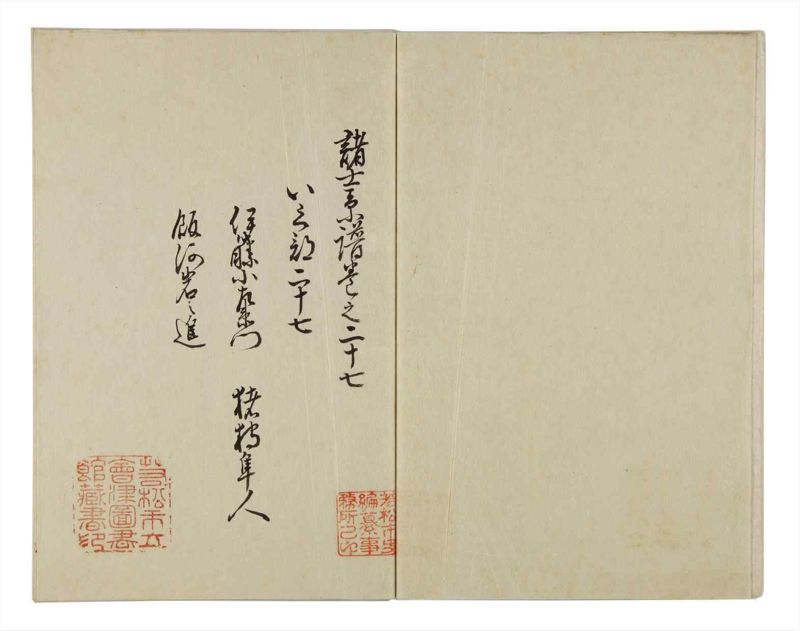 諸士系譜巻之二十七
い之部二十七
伊藤小左衛門　猪狩隼人
飯河岩之進
若松市史
編纂事
務所之印
若松市立
會津圖書
館藏書印